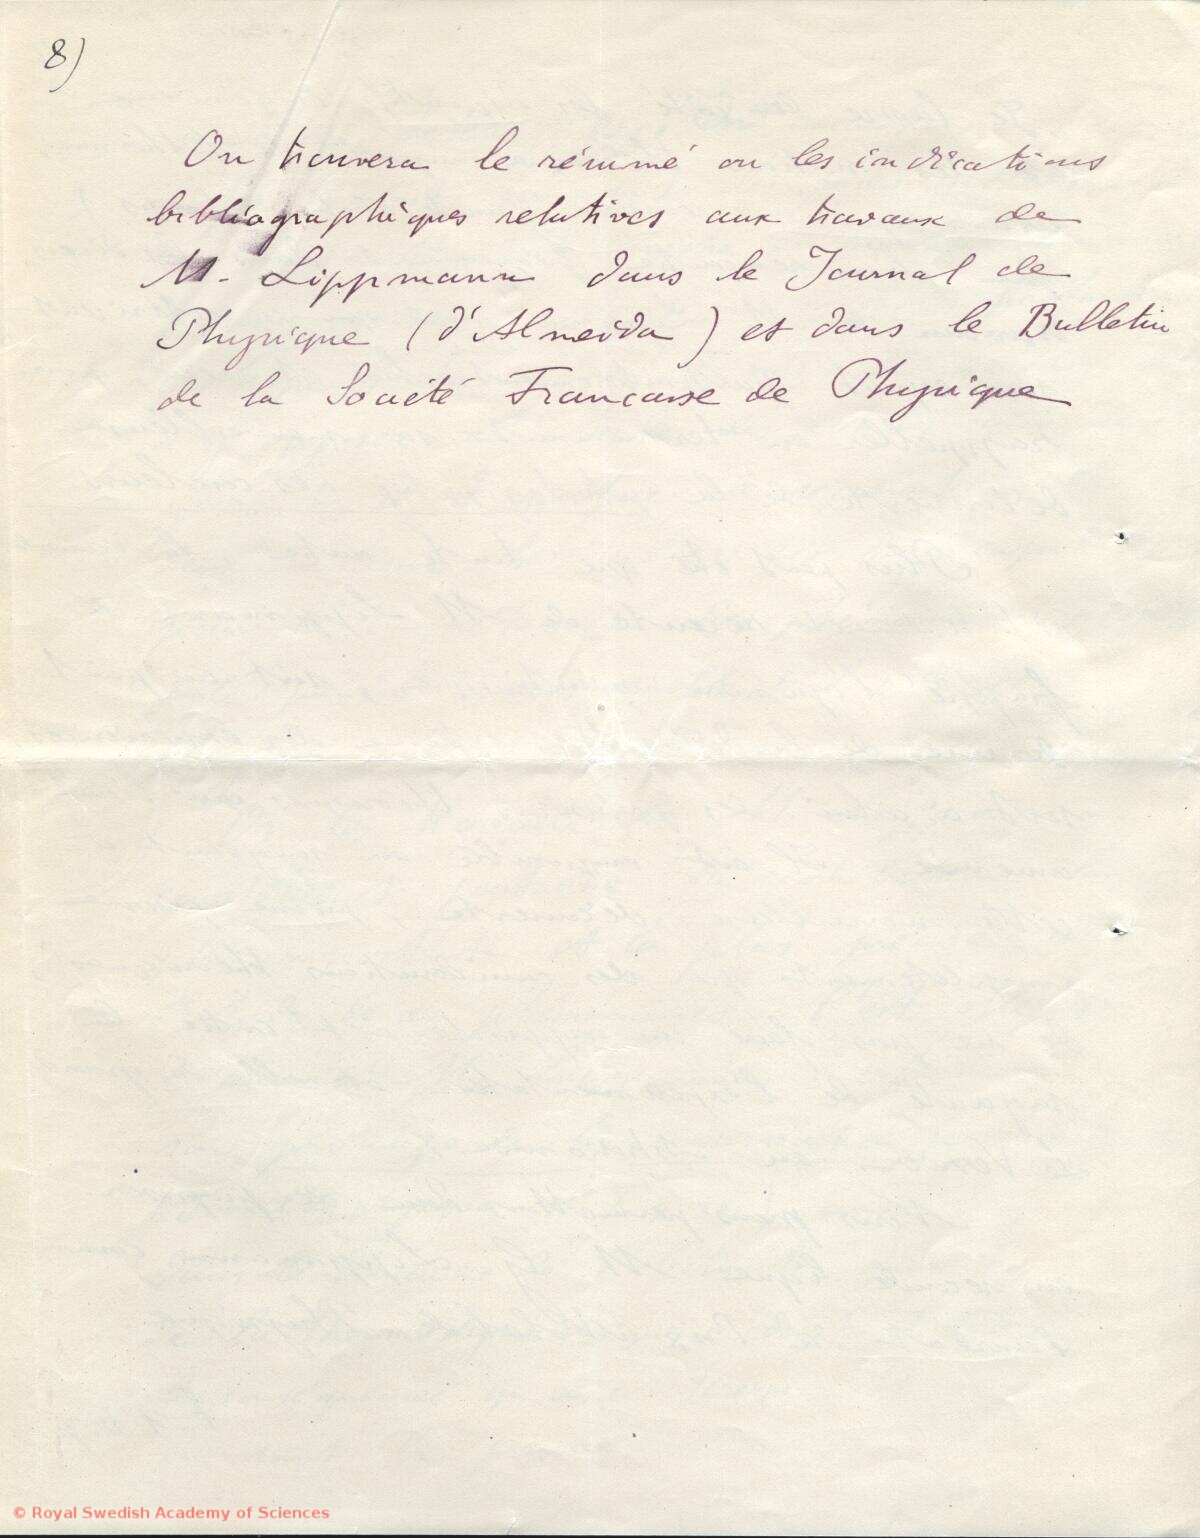 8)
On trouvera le résumé ou les indications
bibliographiques relatives aux travaux de
M. Lippmann dans le Journal de
Physique (d'Almeida) et dans le Bulletin
de la Société Francaise de Physique
© Royal Swedish Academy of Sciences